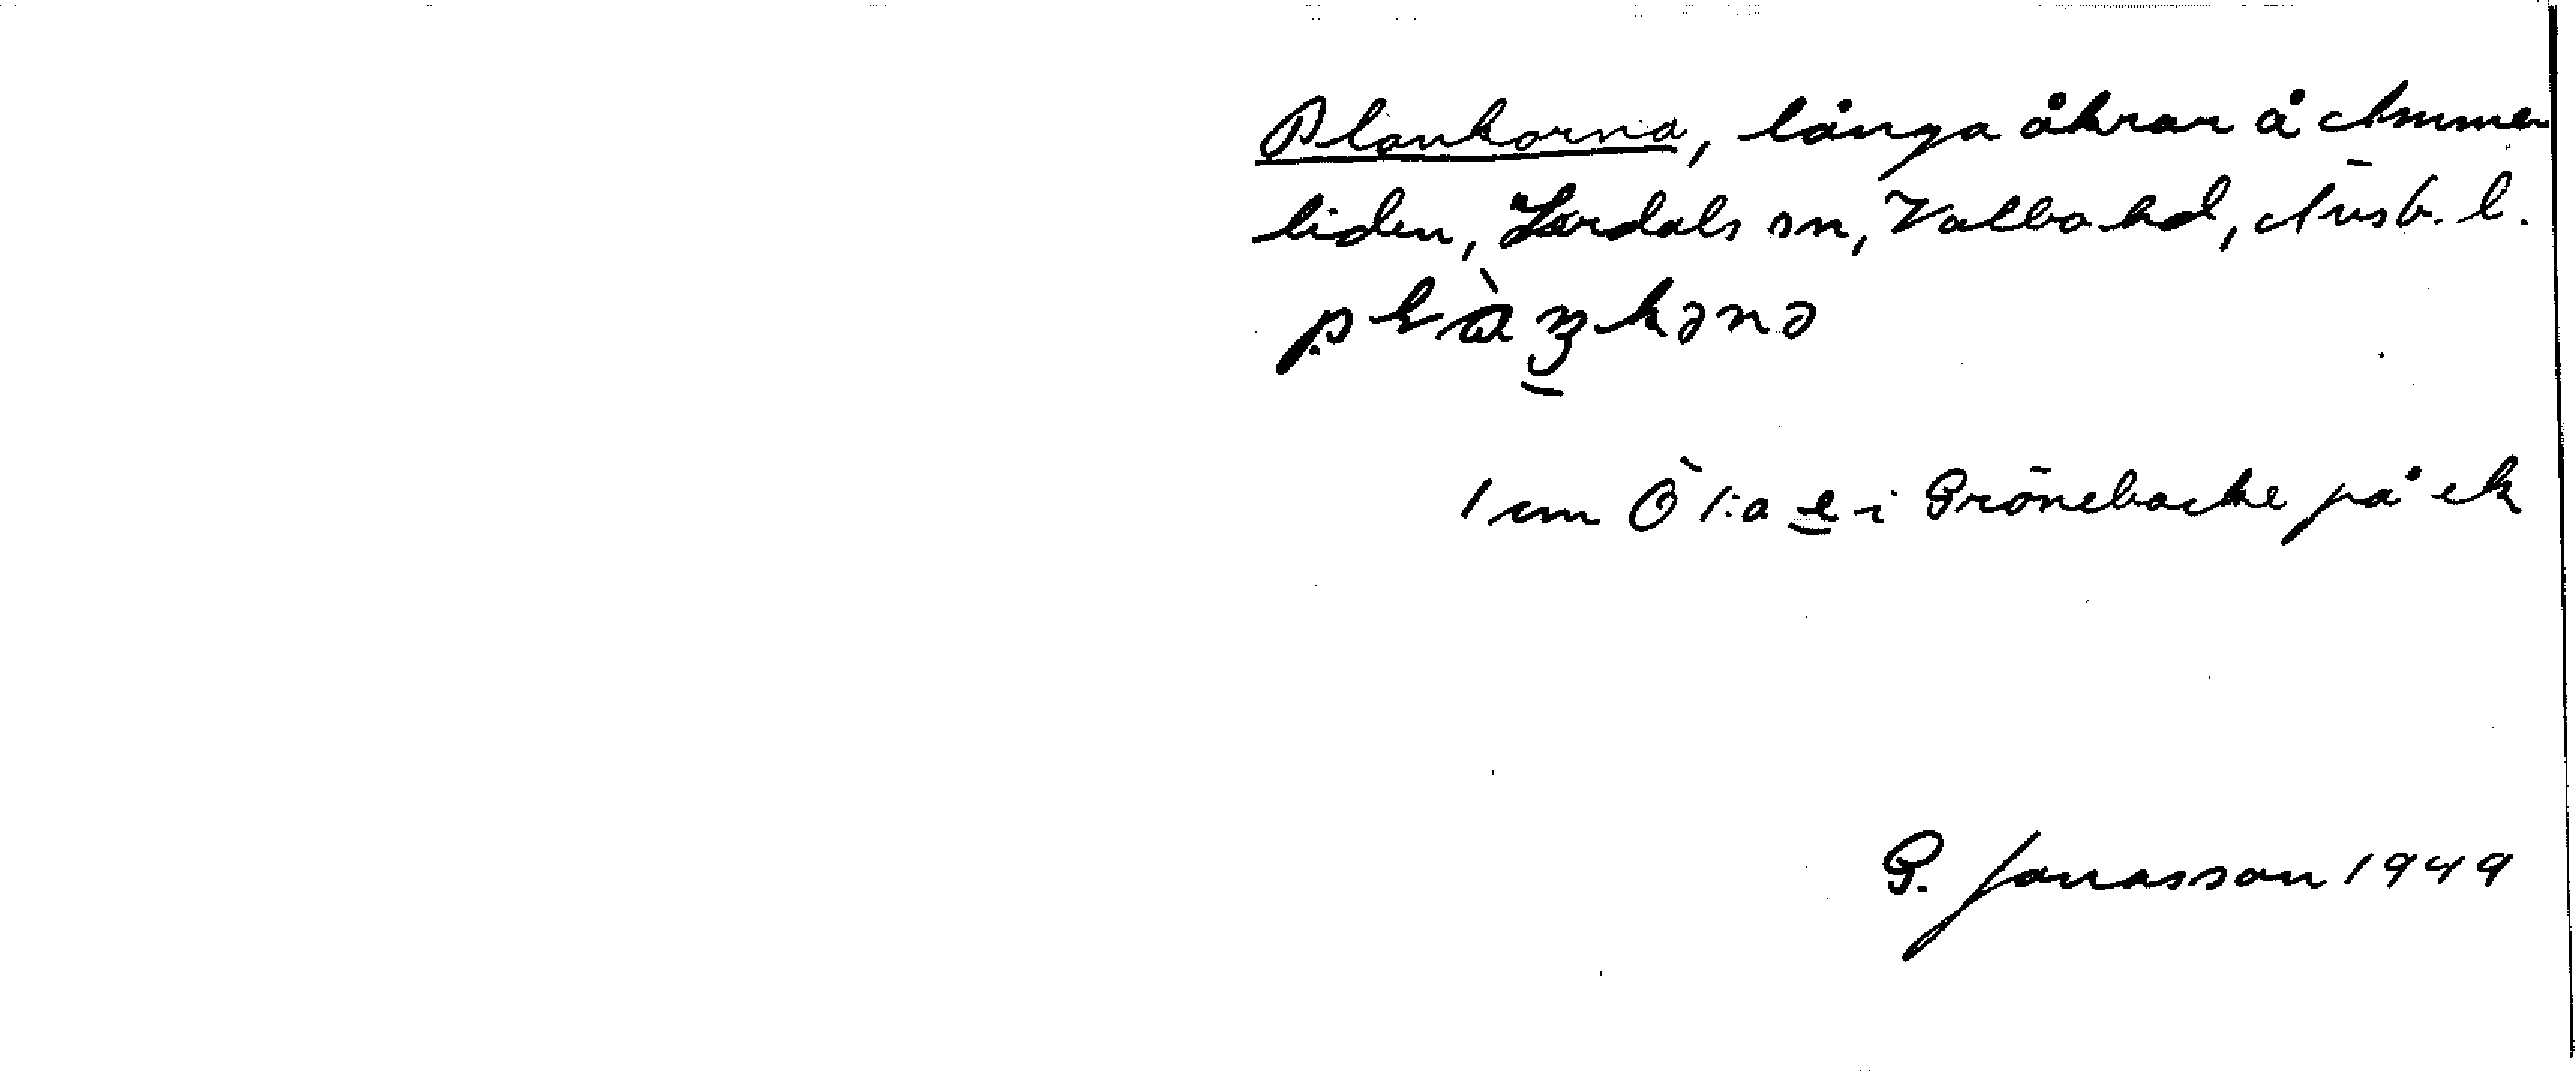 Plankorna, långa åkrar å Ammer
liden, Lerdals sn, Valbo hd, Älvsb. l.
plàŋkənə
1 cm Ö 1:a e i Grönebacke på ek
G. Jonasson 1949